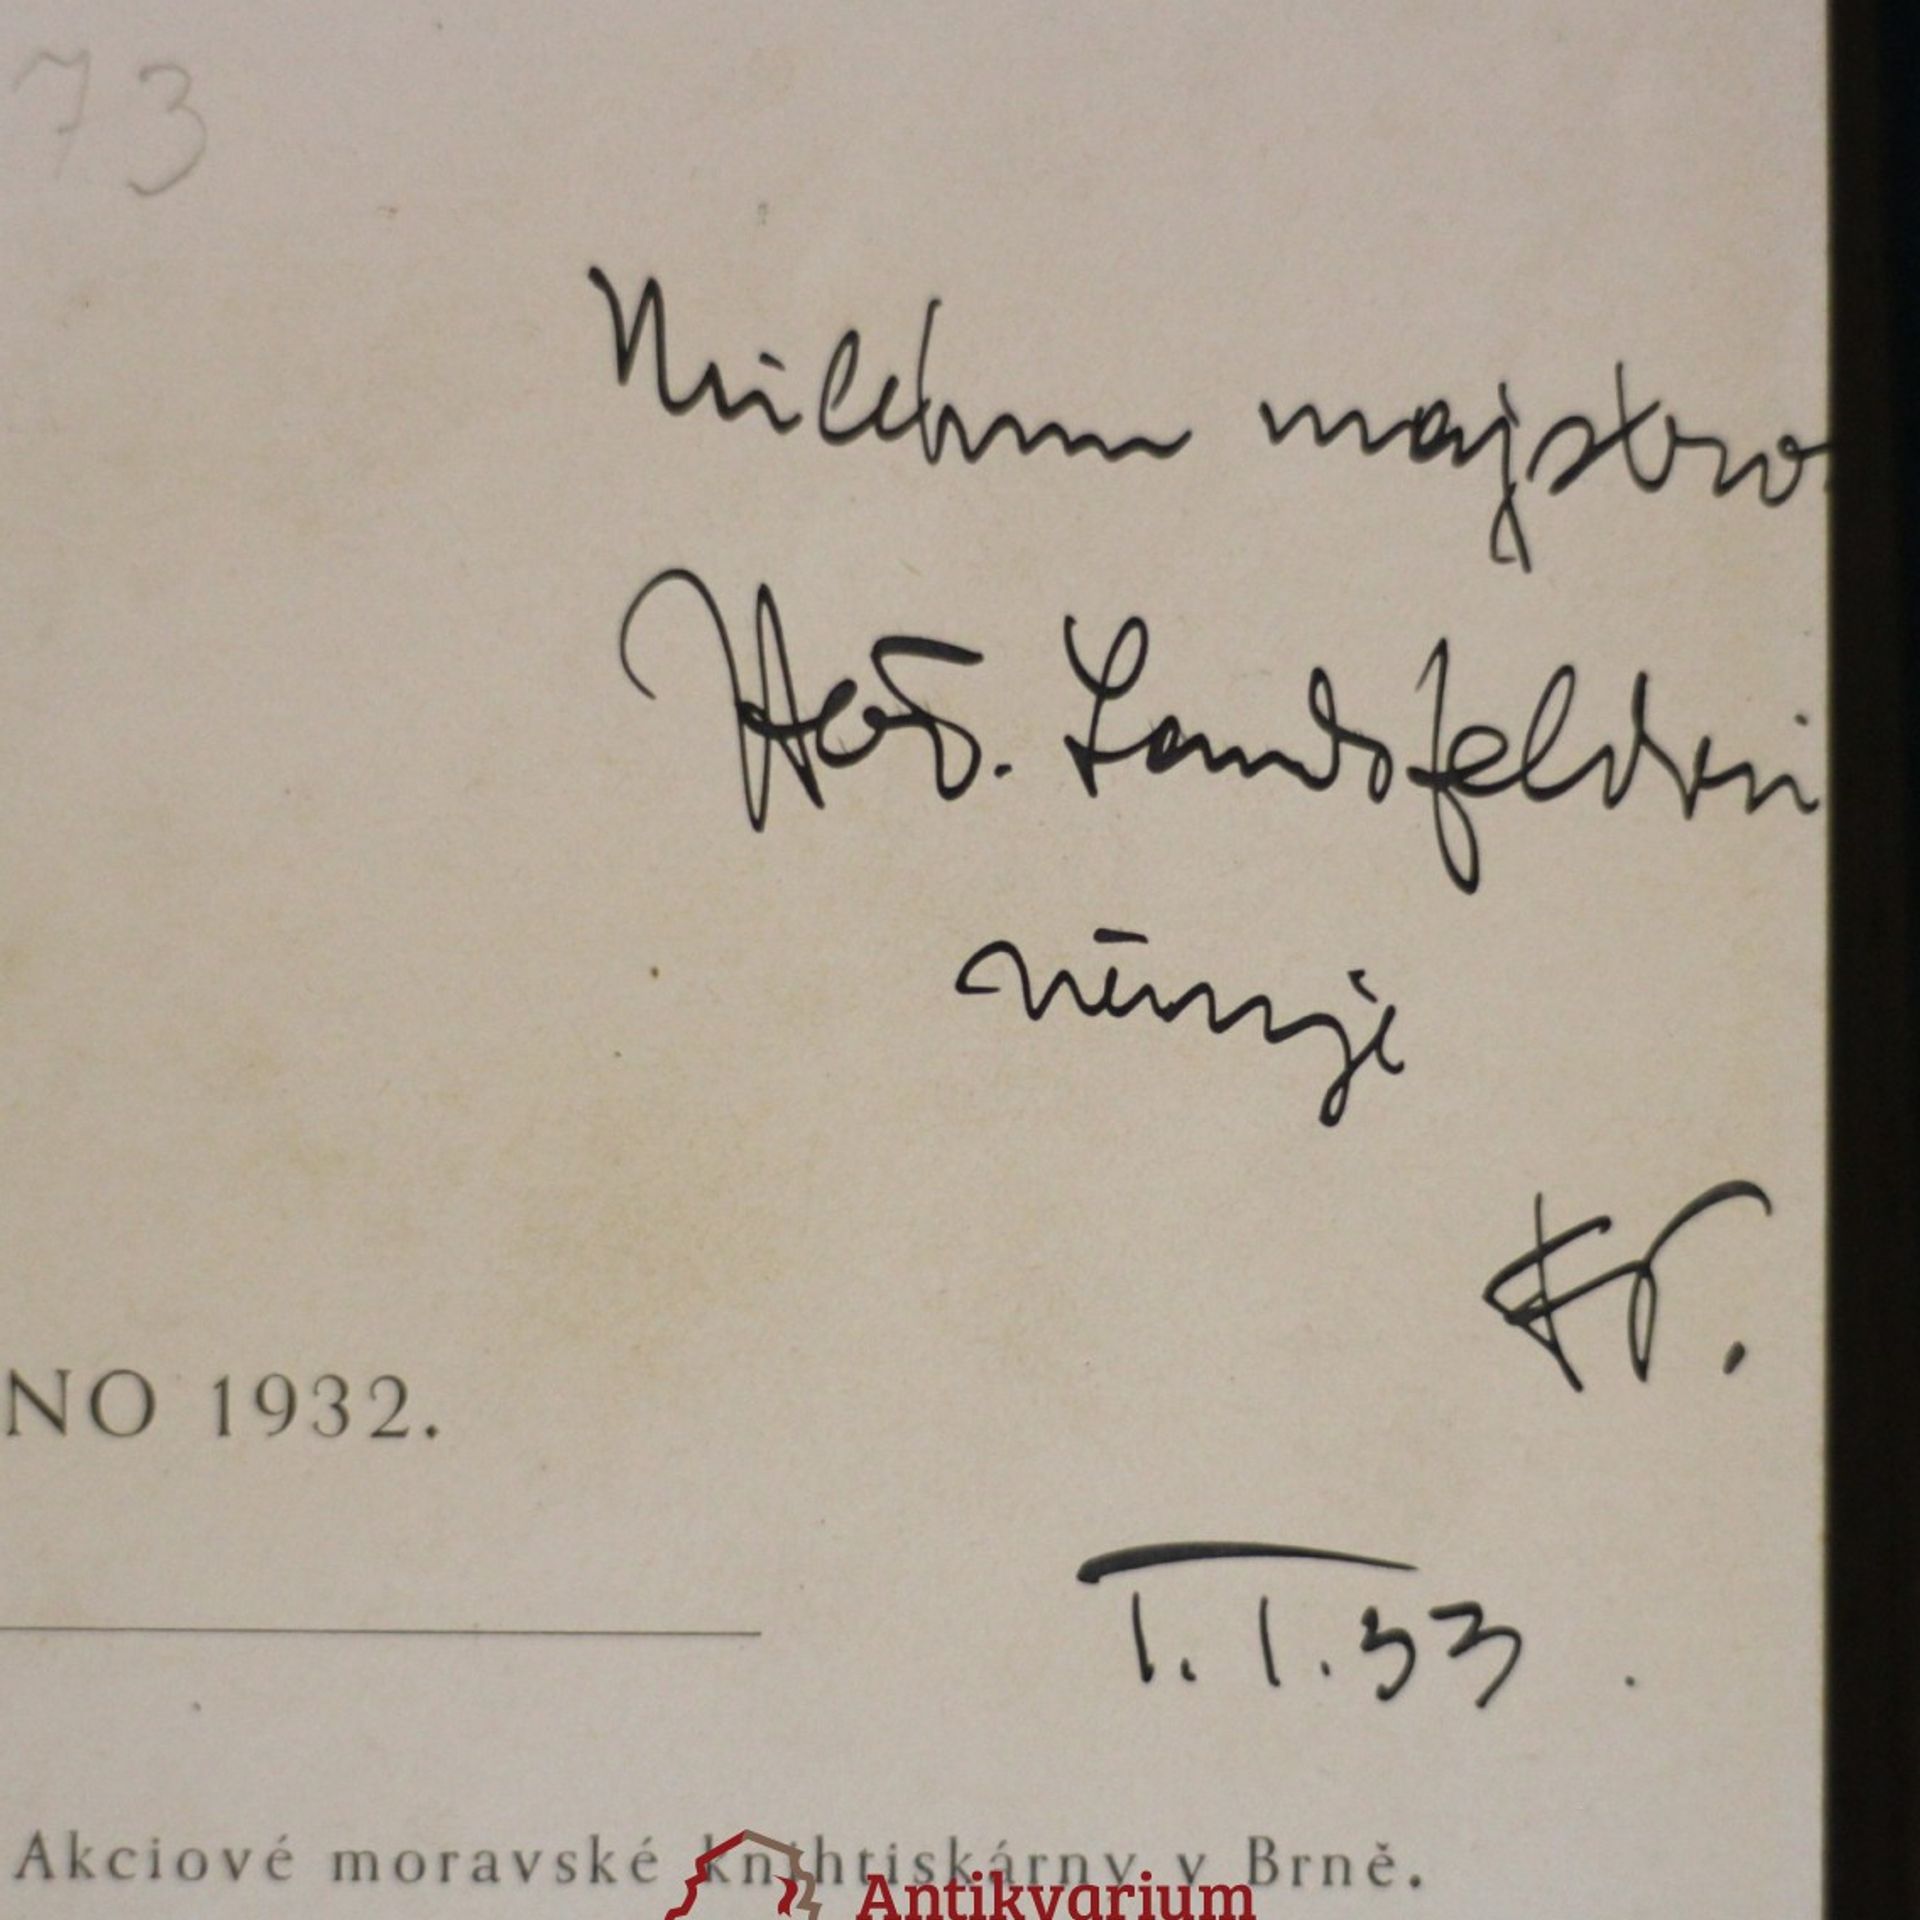 73
Milému majstro
Heř. Landsfeldovi
věnuje
Kr.
NO 1932.
1. 1. 33.
Akciové moravské knihtiskárny v Brně.
Antikvarium